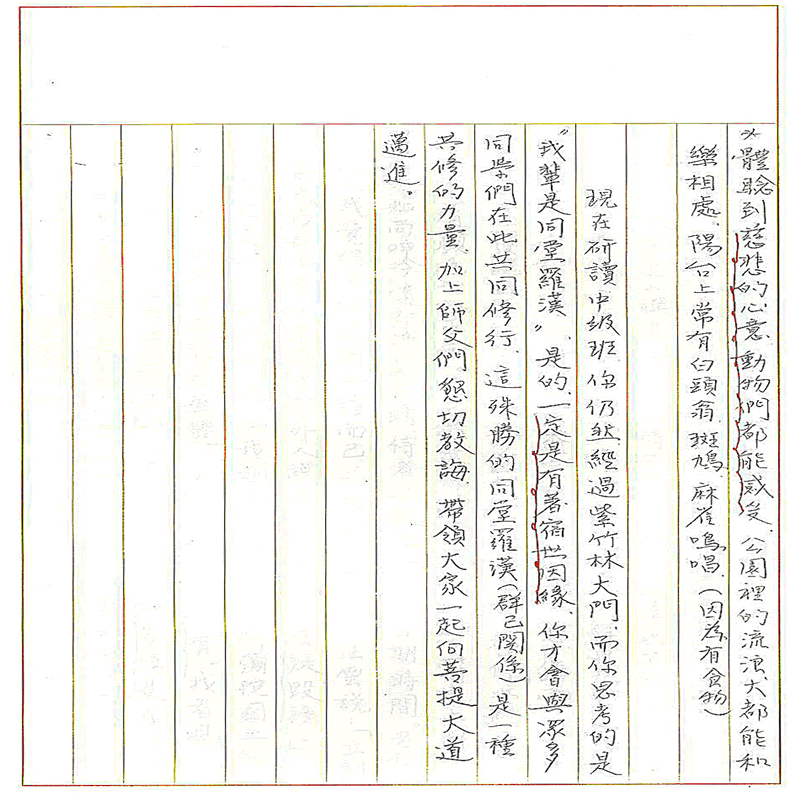 體驗到慈悲的心意.動物們都能感受.公園裡的流浪犬都能和
樂相處.陽台上常有白頭翁.斑鳩.麻雀鳴唱.(因為有食物)
現在研讀中級班.你仍然經過紫竹林大門.而你思考的是
"我輩是同堂羅漢".是的.一定是有著宿世因緣.你才會與眾多
同學們在此共同修行.這殊勝的同堂羅漢(群己關係)是一種
共修的力量.加上師父們懇切教誨.帶領大家一起向菩提大道
邁進。